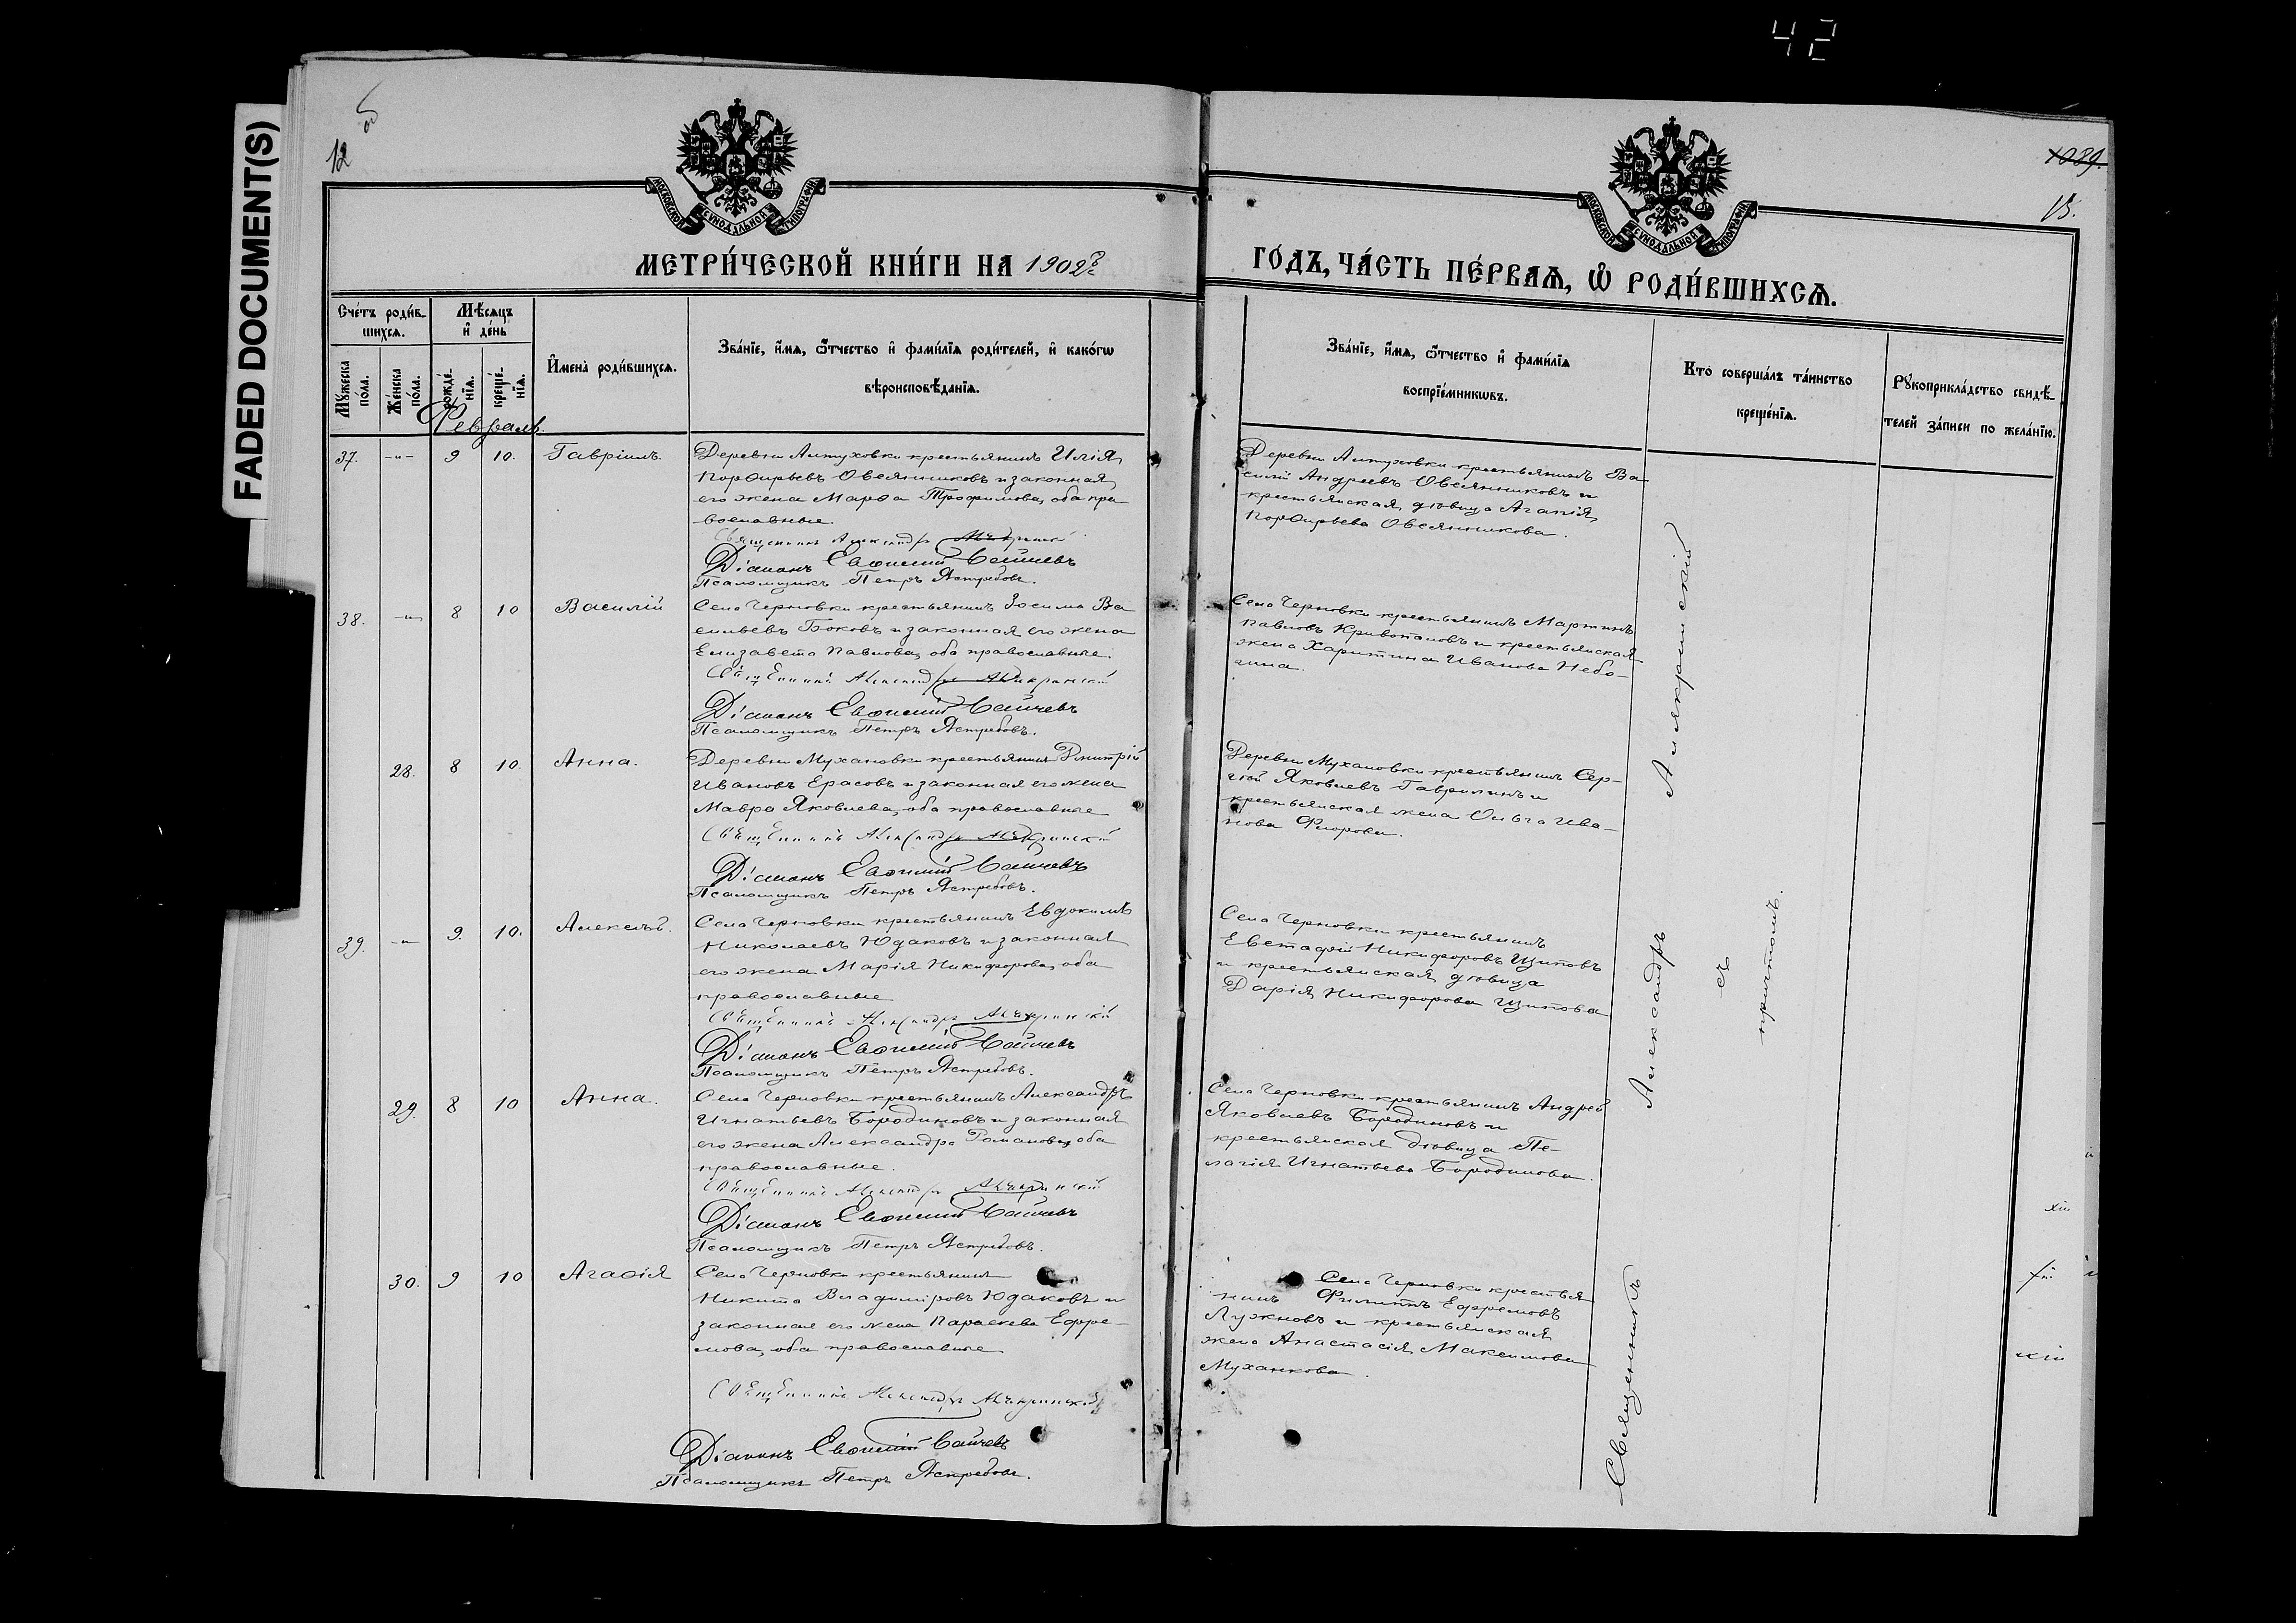 42
FADED DOCUMENT(S)
12
1089.
13.
МОСКОВСКОЙ СѴНОДАЛЬНОЙ ТИПОГРАФІИ
МОСКОВСКОЙ СѴНОДАЛЬНОЙ ТИПОГРАФІИ
МЕТРИ́ЧЕСКОЙ КНИ́ГИ НА 1902й
ГО́ДЪ, ЧА́СТЬ ПЕ́РВАѦ, Ѽ РОДИ́ВШИХСѦ.
Сче́тъ роди́в-
шихсѧ.
Мѣ́сяцъ
и҆ де́нь
Мꙋ́жеска
по́ла.
Же́нска
по́ла.
рожде́-
нїѧ.
креще́-
нїѧ.
И҆мена̀ роди́вшихсѧ.
Зва́нїе, и҆́мѧ, ѻ҆́тчество и҆ фами́лїѧ роди́телей, и҆ како́гѡ
вѣроисповѣ́данїѧ.
Зва́нїе, и҆́мѧ, ѻ҆́тчество и҆ фами́лїѧ
воспрїе́мникѡвъ.
Кто̀ соверша́лъ та́инство
креще́нїѧ.
Рꙋкоприкла́дство свидѣ́-
телей за́писи по жела́нїю.
Февраль.
37. -"- 9 10. Гавріилъ.
Деревни Алтуховки крестьянинъ Илія
Порфирьевъ Овсянниковъ и законная
его жена Марѳа Трофимова, оба пра
вославные.
Священникъ Александръ
Діаконъ Евѳимій
Псаломщикъ Петръ Ястребовъ.
Деревни Алтуховки крестьянинъ Ва
силій Андреевъ Овсянниковъ и
крестьянская дѣвица Агапія
Порфирьева Овсянникова.
38. -"- 8 10 Василій
Села Черновки крестьянинъ Зосима Ва
сильевъ Боковъ и законная его жена
Елизавета Павлова, оба православные.
Священникъ Александръ
Діаконъ Евѳимій
Псаломщикъ Петръ Ястребовъ.
Села Черновки крестьянинъ Мартинъ
Павловъ и крестьянская
жена Харитина Иванова Небо-
гина.
28. 8 10. Анна.
Деревни Мухановки крестьянинъ Димитрій
Ивановъ Ерасовъ и законная его жена
Мавра Яковлева, оба православные
Священникъ Александръ
Діаконъ Евѳимій
Псаломщикъ Петръ Ястребовъ.
Деревни Мухановки крестьянинъ Сер-
гѣй Яковлевъ Гаврилинъ и
крестьянская жена Ольга Ива-
нова Фролова.
39. -"- 9. 10. Алексѣй.
Села Черновки крестьянинъ Евдокимъ
Николаевъ Юдаковъ и законная
его жена Марія Никифорова, оба
православные
Священникъ Александръ
Діаконъ Евѳимій
Псаломщикъ Петръ Ястребовъ.
Села Черновки крестьянинъ
Евстафій Никифоровъ Щиповъ
и крестьянская дѣвица
Дарія Никифорова Щипова
29. 8 10 Анна.
Села Черновки крестьянинъ Александръ
Игнатьевъ Бородиновъ и законная
его жена Александра Романова, оба
православные.
Священникъ Александръ
Діаконъ Евѳимій
Псаломщикъ Петръ Ястребовъ.
Села Черновки крестьянинъ Андрей
Яковлевъ Бородиновъ и
крестьянская дѣвица Пе-
лагія Игнатьева Бородинова.
30. 9 10 Агаѳія
Села Черновки крестьянинъ
Никита Владиміровъ Юдаковъ и
законная его жена Параскева Ефре-
мова, оба православные
Священникъ Александръ
Діаконъ Евѳимій
Псаломщикъ Петръ Ястребовъ.
Села Черновки крестья
нинъ Филиппъ Ефремовъ
Лужновъ и крестьянская
жена Анастасія Максимова
Муханкова.
Священникъ Александръ
съ
причтомъ.